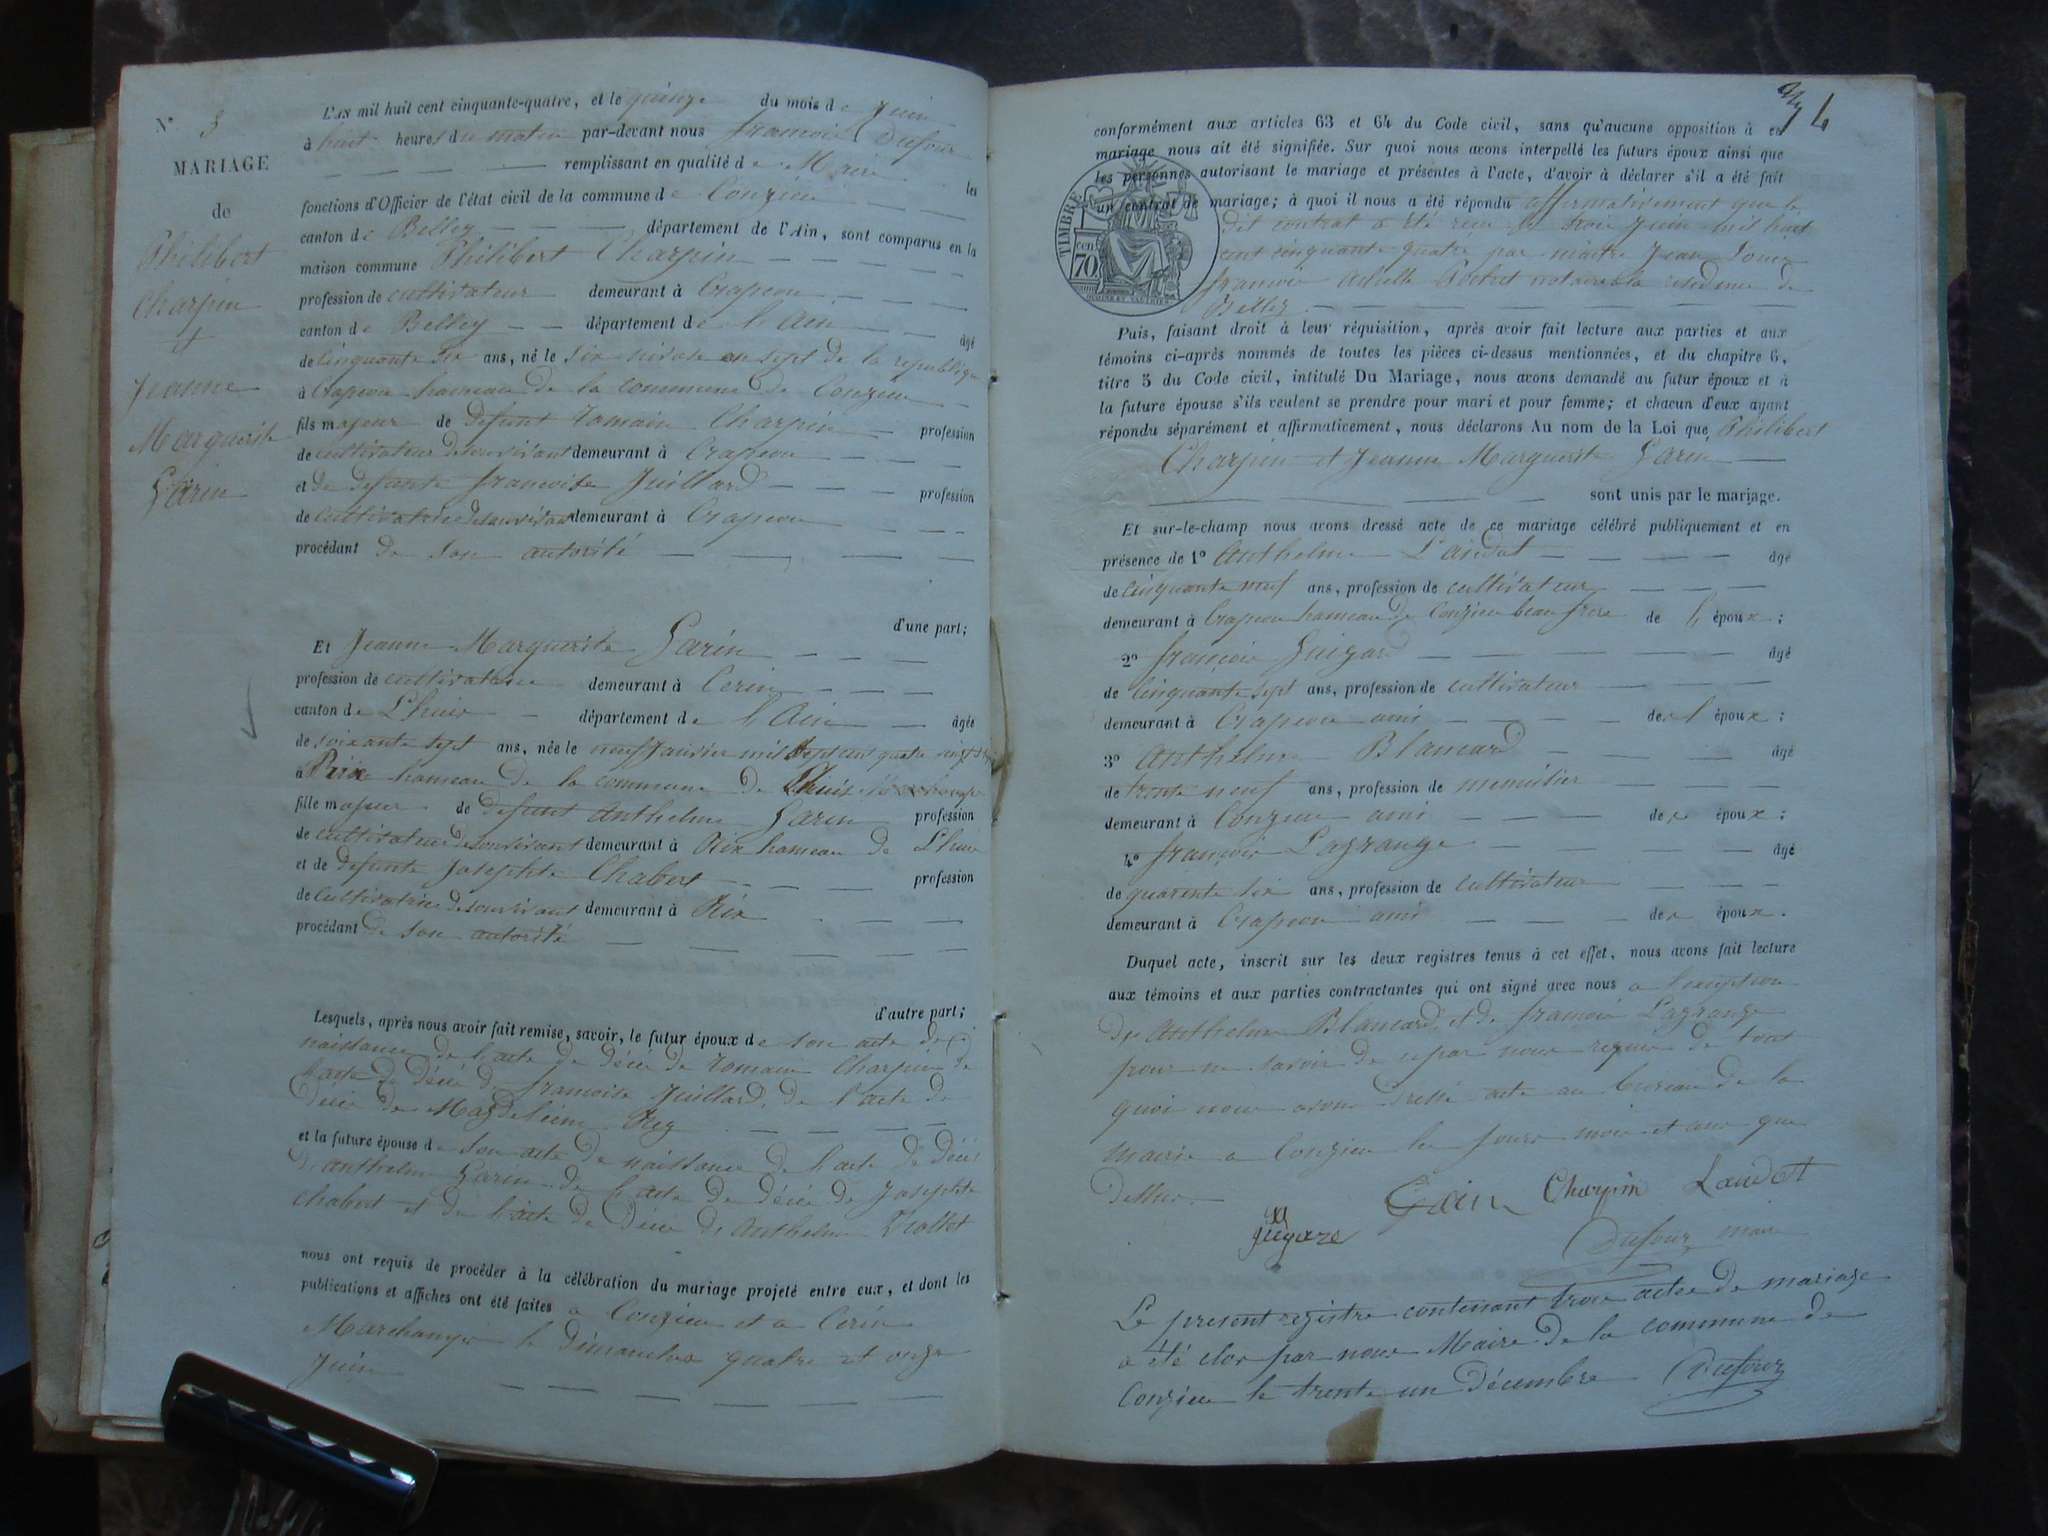 N° 3
MARIAGE
de
Philibert
Charpin
et
Jeanne
Marguerite
Garin
L'AN mil huit cent cinquante-quatre, et le quinze du mois de Juin
à huit heures du matin par-devant nous françois Dufour
remplissant en qualité de Maire les
fonctions d'Officier de l'état civil de la commune de Conzieu
canton de Belley département de l'Ain, sont comparus en la
maison commune Philibert Charpin
profession de cultivateur demeurant à Crapeou
canton de Belley département de l'Ain âgé
de Cinquante six ans, né le six nivose an sept de la republique
à Crapeou hameau de la commune de Conzieu
fils majeur de defunt Romain Charpin profession
de cultivateur desonvivant demeurant à Crapeou
et de defunte francoise Juillard profession
de cultivatrice desonvivant demeurant à Crapeou
procédant de son autorité
d'une part;
Et Jeanne Marguerite Garin
profession de cultivatrice demeurant à Cerin
canton de Lhuis département de l'Ain âgée
de soixante sept ans, née le neuf Janvier mil sept cent quatre vingt
à Rix hameau de la commune de Lhuis
fille majeur de defunt Anthelme Garin profession
de cultivateur desonvivant demeurant à Rix hameau de Lhuis
et de defunte Josephte Chabert profession
de cultivatrice desonvivant demeurant à Rix
procédant de son autorité
d'autre part;
Lesquels, après nous avoir fait remise, savoir, le futur époux de son acte de
naissance de l'acte de décés de Romain Charpin de
l'acte de décés de francoise Juillard, de l'acte de
décés de Magdeleine Rey
et la future épouse de son acte de naissance de l'acte de décés
d'anthelme Garin de l'acte de décés de Josephte
Chabert et de l'acte de décés de Anthelme Trollet
nous ont requis de procéder à la célébration du mariage projeté entre eux, et dont les
publications et affiches ont été faites a Conzieu et a Cerin
Marchamp le dimanches quatre et onze
Juin
4
conformément aux articles 63 et 64 du Code civil, sans qu'aucune opposition à ce
mariage nous ait été signifiée. Sur quoi nous avons interpellé les futurs époux ainsi que
les personnes autorisant le mariage et présentes à l'acte, d'avoir à déclarer s'il a été fait
un contrat de mariage; à quoi il nous a été répondu affirmativement que le
dit contrat a été recu le trois Juin mil huit
cent cinquante quatre par maitre Jean Louis
francois notaire a la residence de
Belley
TIMBRE
cen
70
Puis, faisant droit à leur réquisition, après avoir fait lecture aux parties et aux
témoins ci-après nommés de toutes les pièces ci-dessus mentionnées, et du chapitre 6,
titre 5 du Code civil, intitulé Du Mariage, nous avons demandé au futur époux et à
la future épouse s'ils veulent se prendre pour mari et pour femme; et chacun d'eux ayant
répondu séparément et affirmativement, nous déclarons Au nom de la Loi que Philibert
Charpin et Jeanne Marguerite Garin
sont unis par le mariage.
Et sur-le-champ nous avons dressé acte de ce mariage célébré publiquement et en
présence de 1° Anthelme Laudet âgé
de Cinquante neuf ans, profession de cultivateur
demeurant à Crapeou hameau de Conzieu beau frere de l'époux;
2° françois Guigard âgé
de Cinquante sept ans, profession de cultivateur
demeurant à Crapeou ami de l'époux;
3° Anthelme Blancard âgé
de trente neuf ans, profession de menuisier
demeurant à Conzieu ami des époux;
4° françois Lagrange âgé
de quarente six ans, profession de Cultivateur
demeurant à Crapeou ami des époux.
Duquel acte, inscrit sur les deux registres tenus à cet effet, nous avons fait lecture
aux témoins et aux parties contractantes qui ont signé avec nous a l'exception
de Anthelme Blancard, et de francois Lagrange
pour ne savoir de ce par nous requis de tout
quoi nous avons dressé acte au bureau de la
mairie a Conzieu les jours mois et ans que
dessus.
Gain Charpin Laudet
guigare Dufour maire
Le present registre contenant trois actes de mariage
a été clos par nous Maire de la commune de
Conzieu le trente un décembre Dufour